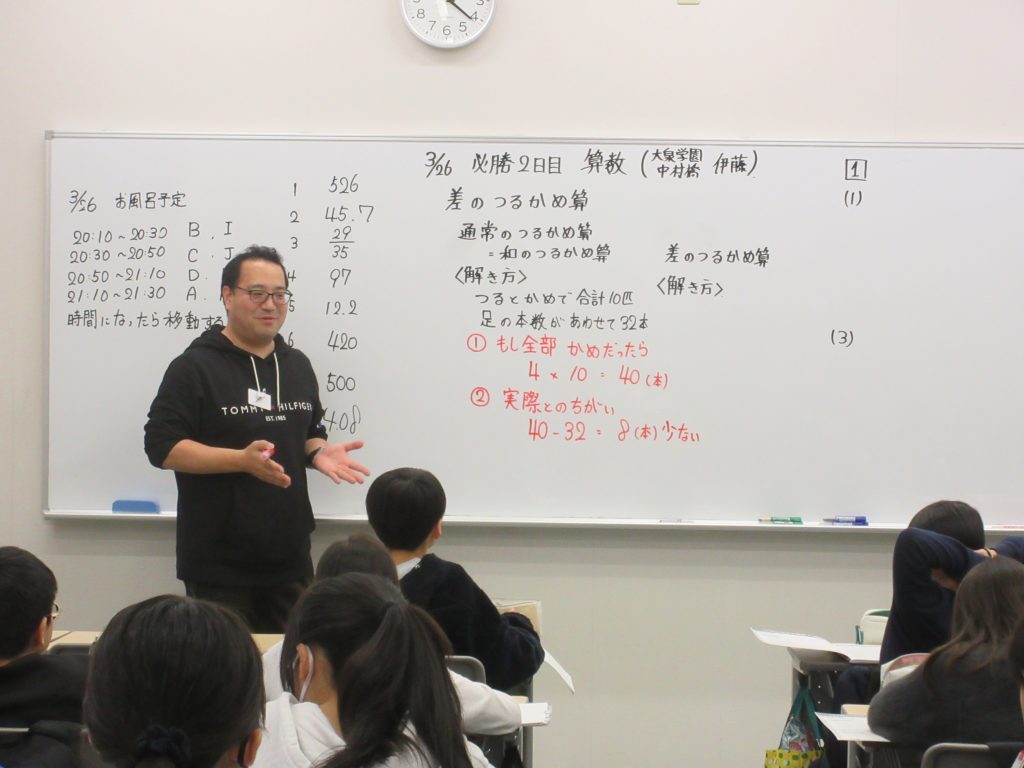 3/26 お風呂予定
20:10～20:30 B. I
20:30～20:50 C. J
20:50～21:10 D.
21:10～21:30 A.
時間になったら移動する
1 526
2 45.7
3 29/35
4 97
5 12.2
6 420
500
4.08
3/26 必勝2日目 算数 (大泉学園 中村橋 伊藤)
差のつるかめ算
通常のつるかめ算
=和のつるかめ算
〈解き方〉
つるとかめで合計10匹
足の本数があわせて32本
① もし全部かめだったら
4 × 10 = 40(本)
② 実際とのちがい
40-32 = 8(本)少ない
差のつるかめ算
〈解き方〉
1
(1)
(3)
TOMMY HILFIGER
EST. 1985
4 5 6 7 8